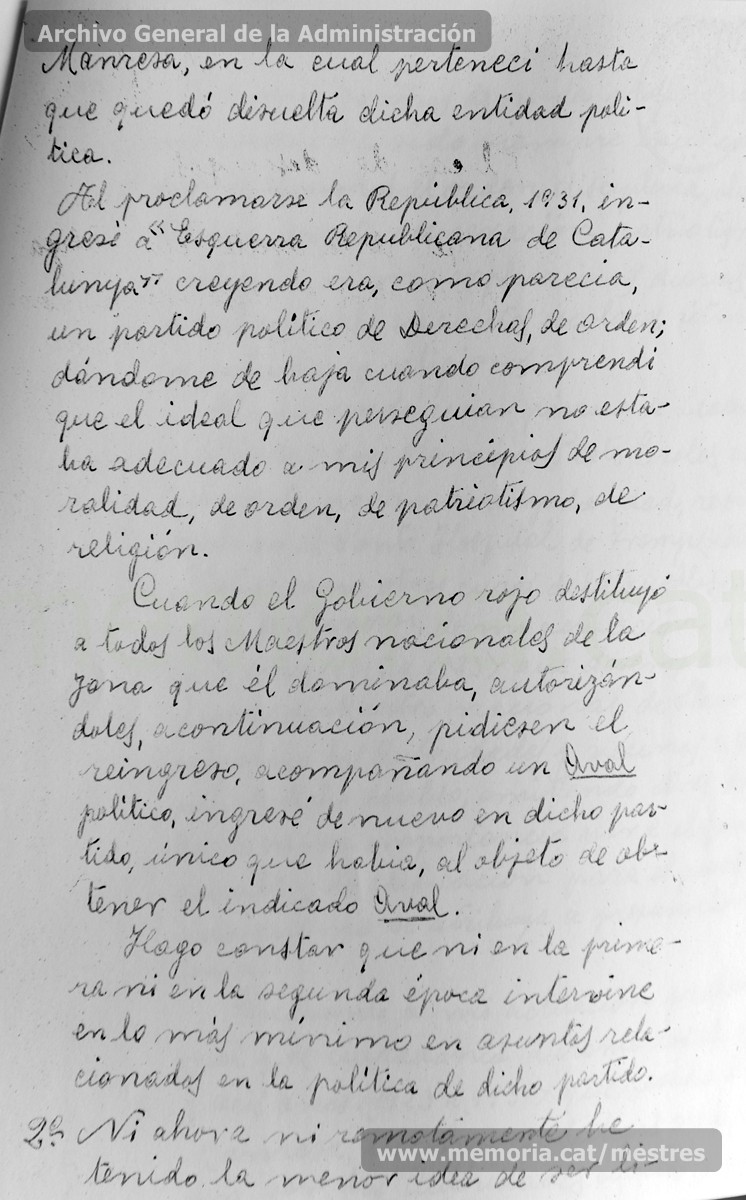 Archivo General de la Administración
Manresa, en la cual perteneci hasta
que quedó disuelta dicha entidad polí-
tica.
Al proclamarse la República, 1931, in-
gresé a "Esquerra Republicana de Cata-
lunya" creyendo era, como parecia,
un partido político de Derechas, de orden;
dándome de baja cuando comprendi
que el ideal que perseguian no esta-
ba adecuado a mis principios de mo-
ralidad, de orden, de patriotismo, de
religión.
Cuando el Gobierno rojo destituyó
a todos los Maestros nacionales de la
zona que él dominaba, autorizán-
doles, a continuación, pidiesen el
reingreso, acompañando un Aval
político, ingresé de nuevo en dicho par-
tido, único que habia, al objeto de ob-
tener el indicado Aval.
Hago constar que ni en la prime-
ra ni en la segunda época intervine
en lo más mínimo en asuntos rela-
cionados en la política de dicho partido.
2º Ni ahora ni remotamente he
tenido la menor idea de ser li-
www.memoria.cat/mestres